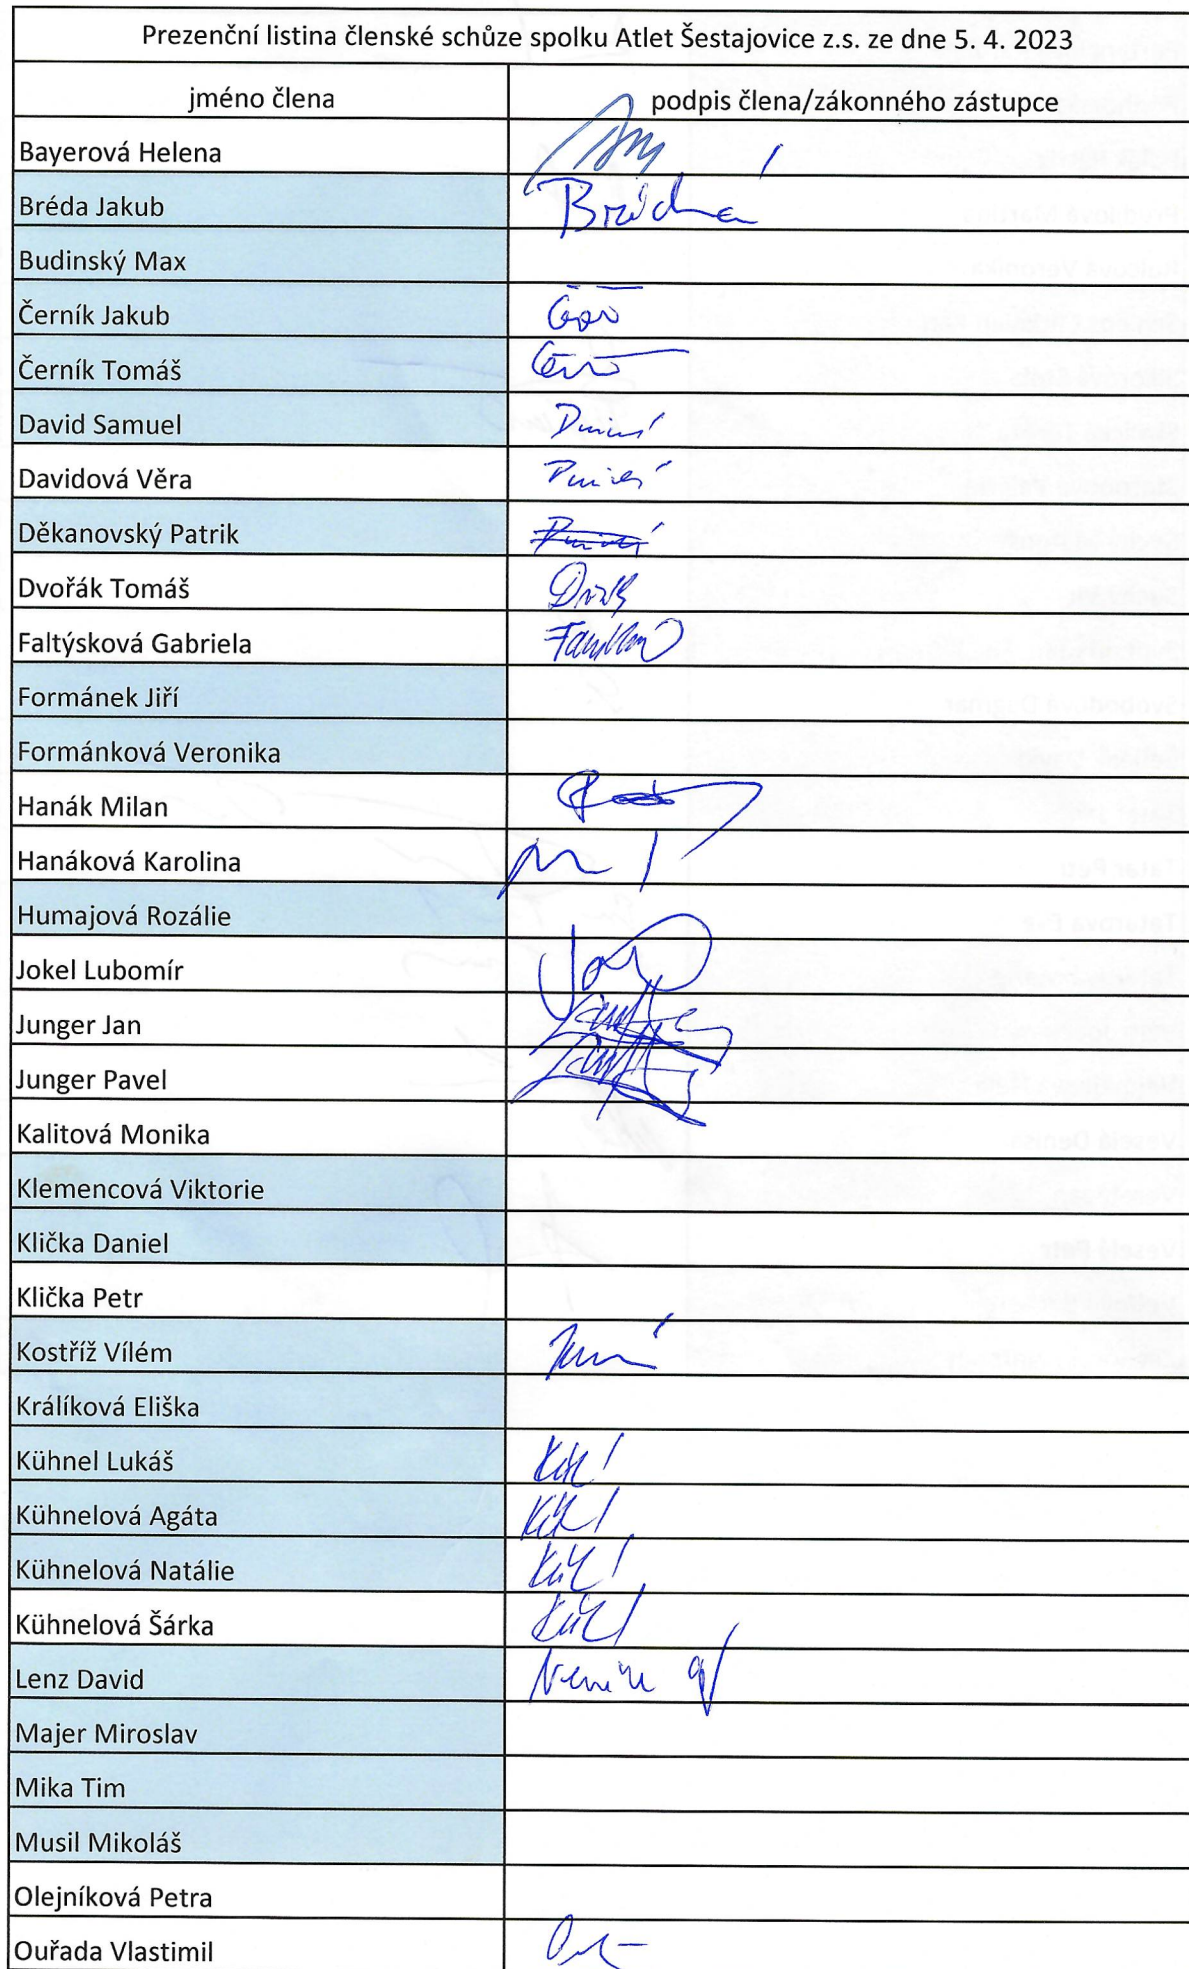 Prezenční listina členské schůze spolku Atlet Šestajovice z.s. ze dne 5. 4. 2023
jméno člena podpis člena/zákonného zástupce
Bayerová Helena
Bréda Jakub
Budinský Max
Černík Jakub
Černík Tomáš
David Samuel
Davidová Věra
Děkanovský Patrik
Dvořák Tomáš
Faltýsková Gabriela
Formánek Jiří
Formánková Veronika
Hanák Milan
Hanáková Karolina
Humajová Rozálie
Jokel Lubomír
Junger Jan
Junger Pavel
Kalitová Monika
Klemencová Viktorie
Klička Daniel
Klička Petr
Kostříž Vílém
Králíková Eliška
Kühnel Lukáš
Kühnelová Agáta
Kühnelová Natálie
Kühnelová Šárka
Lenz David
Majer Miroslav
Mika Tim
Musil Mikoláš
Olejníková Petra
Ouřada Vlastimil